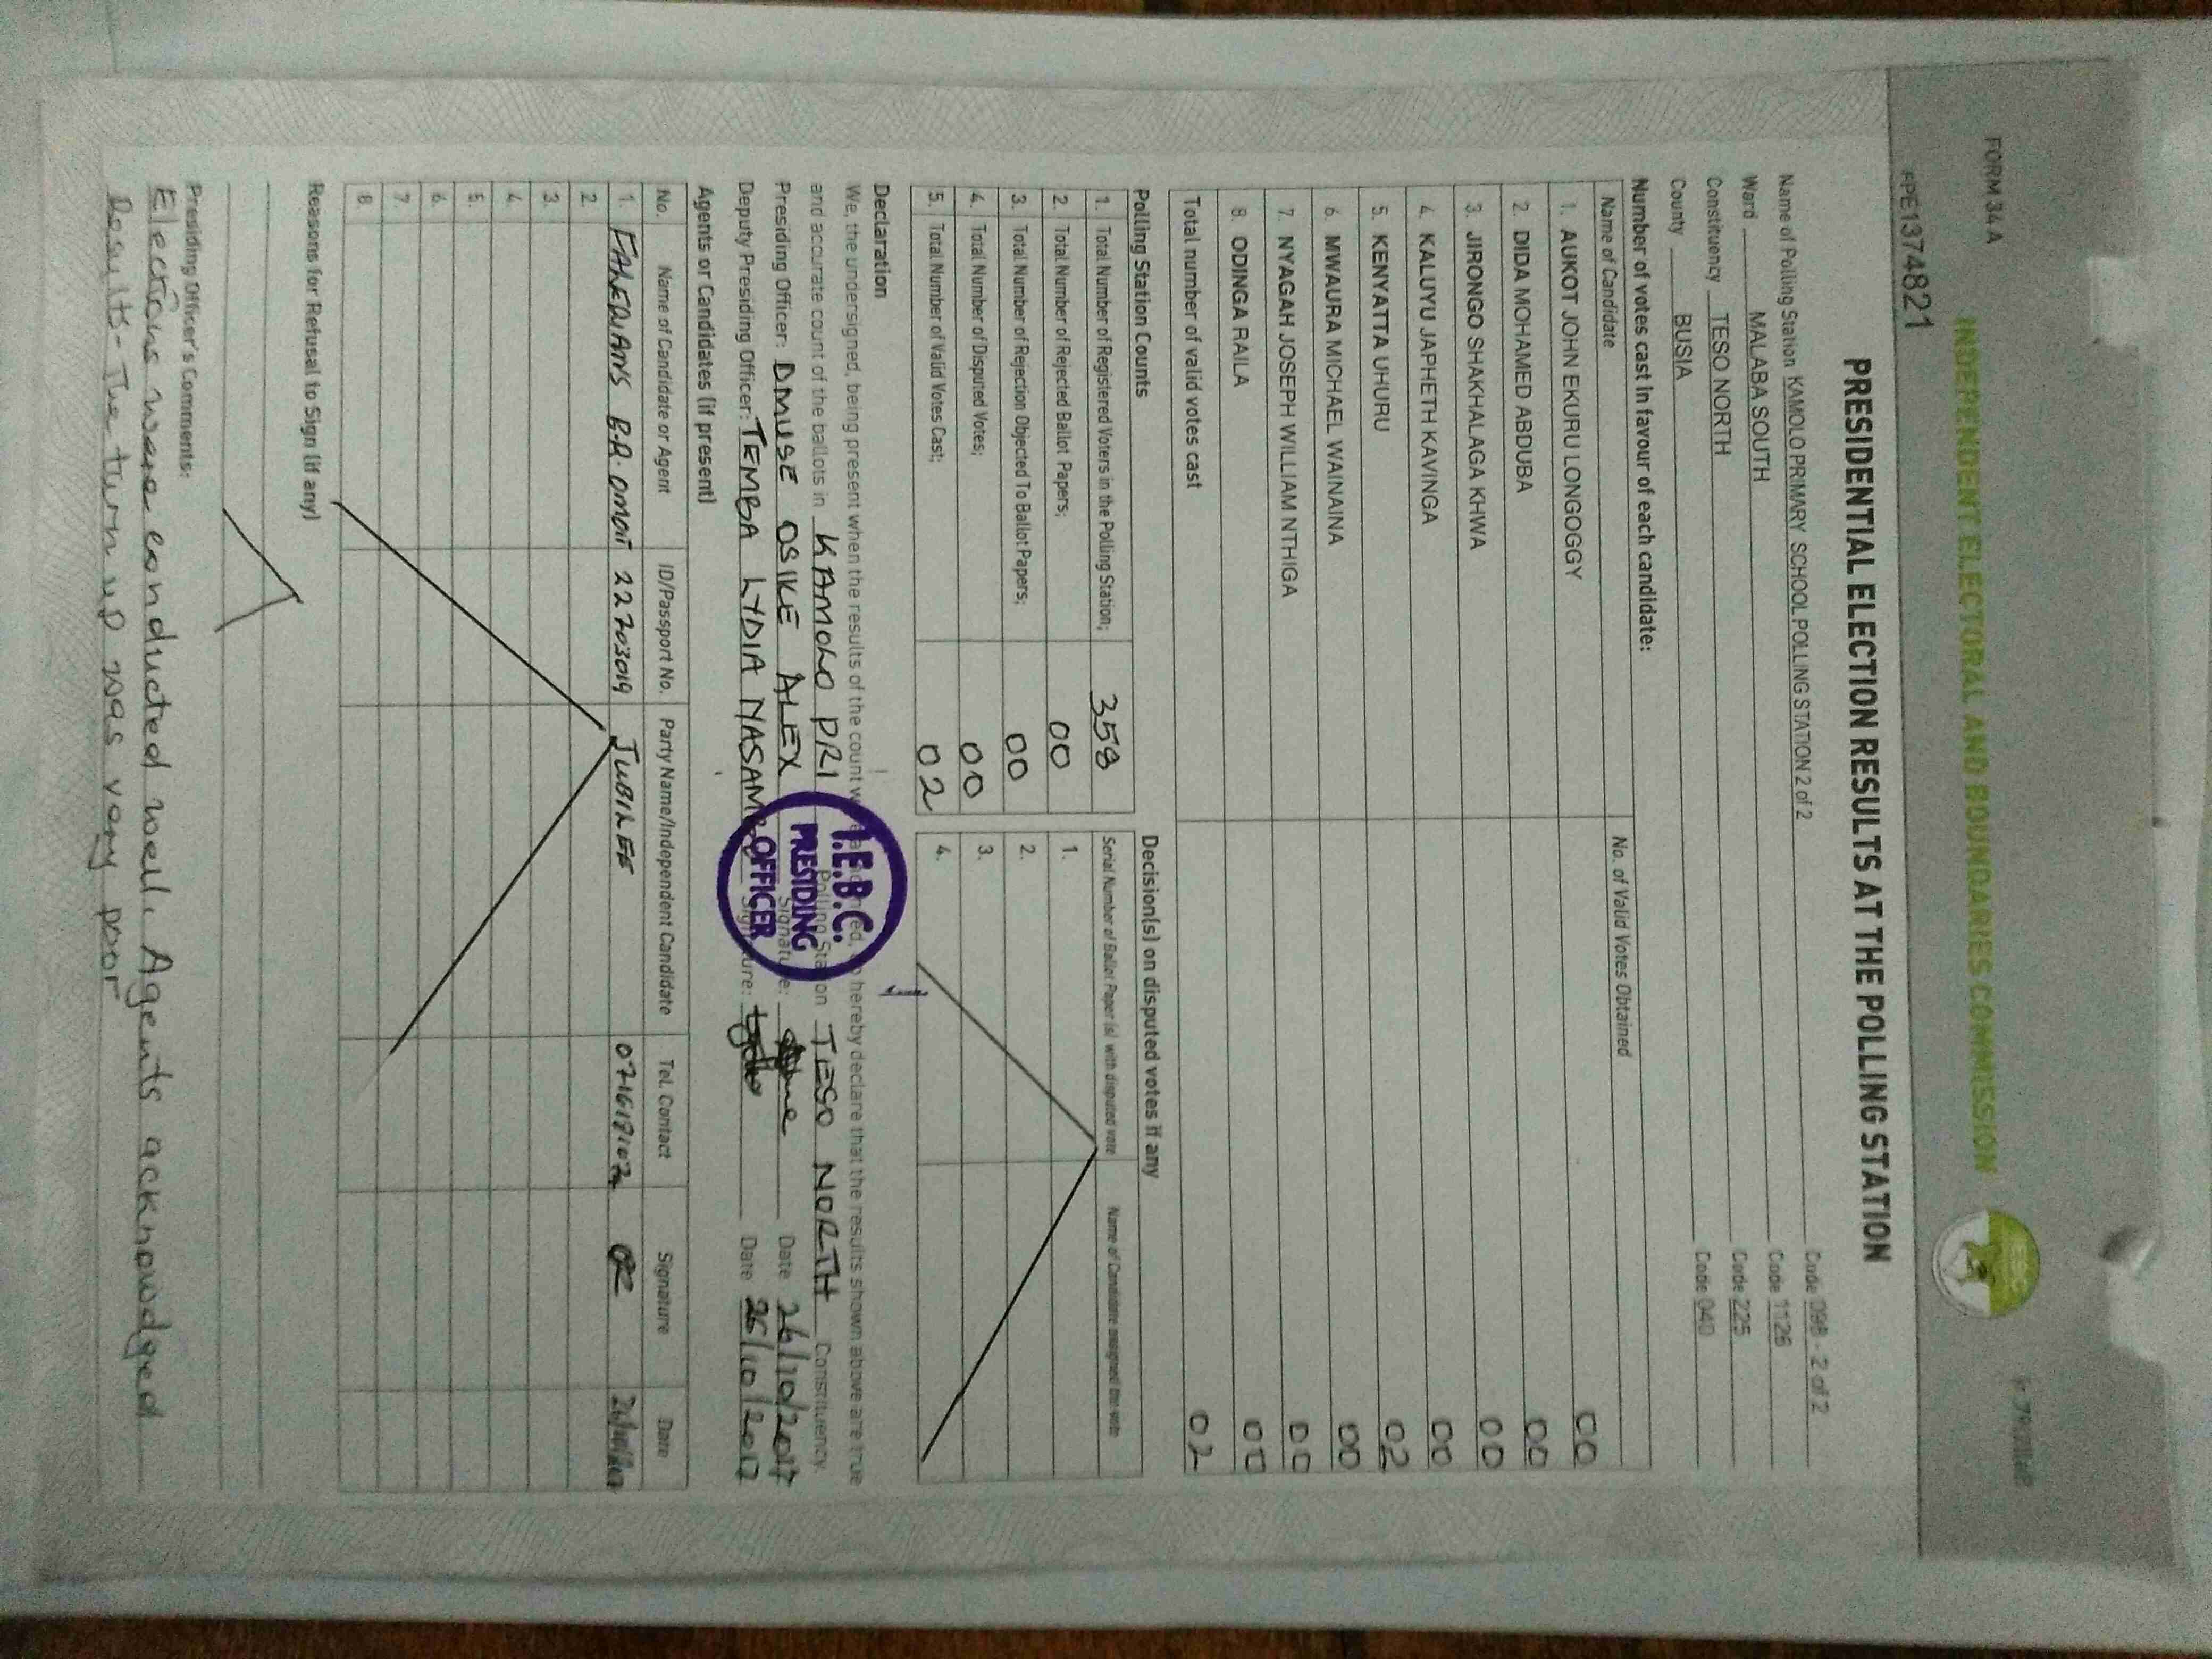 FORM 34 A
INDEPENDENT ELECTORAL AND BOUNDARIES COMMISSION
IEBC
PPE1374821
PRESIDENTIAL ELECTION RESULTS AT THE POLLING STATION
Name of Polling Station KAMOLO PRIMARY SCHOOL POLLING STATION 2 of 2 Code 098 - 2 of 2
Ward MALABA SOUTH Code 1126
Constituency TESO NORTH Code 225
County BUSIA Code 040
Number of votes cast in favour of each candidate:
Name of Candidate No. of Valid Votes Obtained
1. AUKOT JOHN EKURU LONGOGGY 00
2. DIDA MOHAMED ABDUBA 00
3. JIRONGO SHAKHALAGA KHWA 00
4. KALUYU JAPHETH KAVINGA 00
5. KENYATTA UHURU 02
6. MWAURA MICHAEL WAINAINA 00
7. NYAGAH JOSEPH WILLIAM NTHIGA 00
8. ODINGA RAILA 00
Total number of valid votes cast 02
Polling Station Counts
1. Total Number of Registered Voters in the Polling Station; 358
2. Total Number of Rejected Ballot Papers; 00
3. Total Number of Rejection Objected To Ballot Papers; 00
4. Total Number of Disputed Votes; 00
5. Total Number of Valid Votes Cast; 02
Decision(s) on disputed votes if any
Serial Number of Ballot Paper (s) with disputed vote Name of Candidate assigned the vote
1.
2.
3.
4.
Declaration
We, the undersigned, being present when the results of the count were announced, do hereby declare that the results shown above are true
and accurate count of the ballots in KAMOLO PRI Polling Station TESO NORTH Constituency.
Presiding Officer: OMUSE OSIKE ALEX Signature: Date 26/10/2017
Deputy Presiding Officer: TEMBA LYDIA Signature: Date 26/10/2017
I.E.B.C.
PRESIDING
OFFICER
Agents or Candidates (if present)
No. Name of Candidate or Agent ID/Passport No. Party Name/Independent Candidate Tel. Contact Signature Date
1. B.A. OMOIT 22703019 JUBILEE
2.
3.
4.
5.
6.
7.
8.
Reasons for Refusal to Sign (if any)
Presiding Officer's Comments:
Elections were conducted well. Agents acknowledged
Results- The turn up was very poor